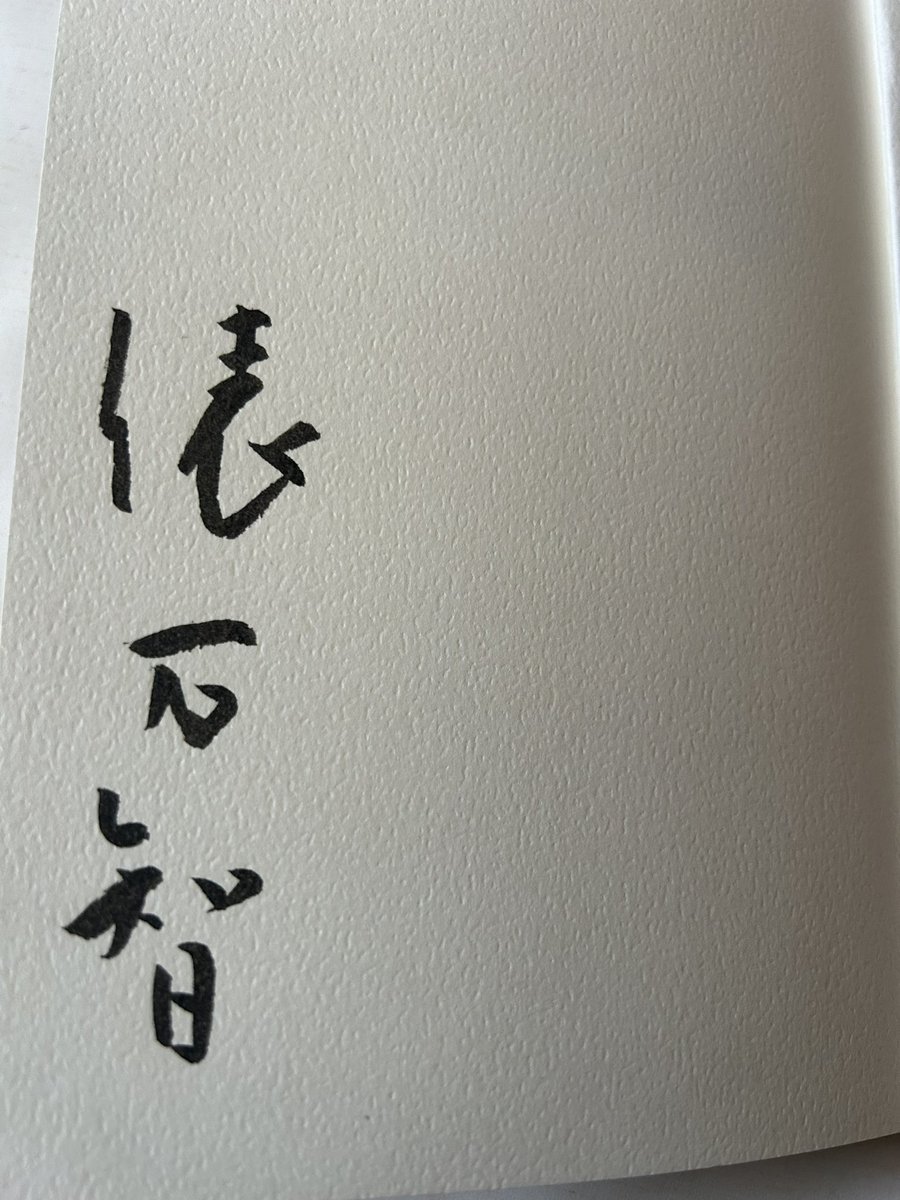 俵万智